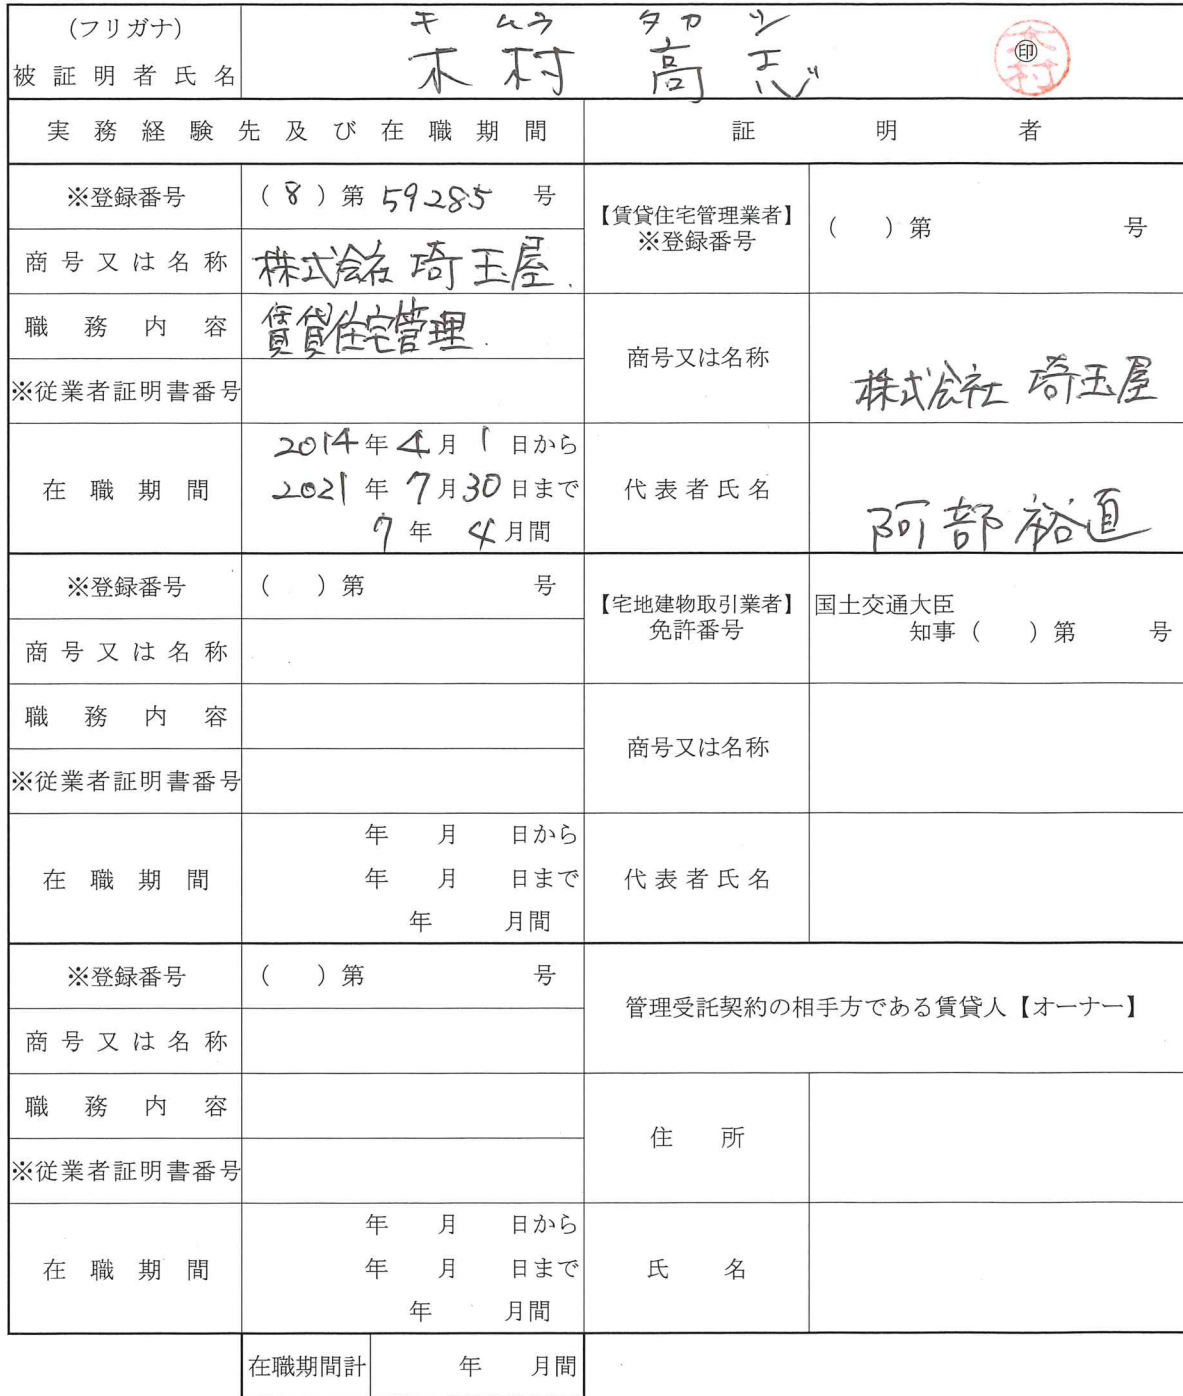 (フリガナ) キムラ タカシ
被証明者氏名 木村 高志 ㊞ 木村
実務経験先及び在職期間 証明者
※登録番号 (8)第 59285 号
【賃貸住宅管理業者】 ※登録番号 ( )第 号
商号又は名称 株式会社 埼玉屋.
職務内容 賃貸住宅管理.
※従業者証明書番号
商号又は名称 株式会社 埼玉屋
在職期間 2014年4月1日から
2021年7月30日まで
7年 4月間
代表者氏名 阿部裕直
※登録番号 ( )第 号
【宅地建物取引業者】 免許番号 国土交通大臣
知事( )第 号
商号又は名称
職務内容
※従業者証明書番号
商号又は名称
在職期間 年 月 日から
年 月 日まで
年 月間
代表者氏名
※登録番号 ( )第 号
管理受託契約の相手方である賃貸人【オーナー】
商号又は名称
職務内容
※従業者証明書番号
住所
在職期間 年 月 日から
年 月 日まで
年 月間
氏名
在職期間計 年 月間